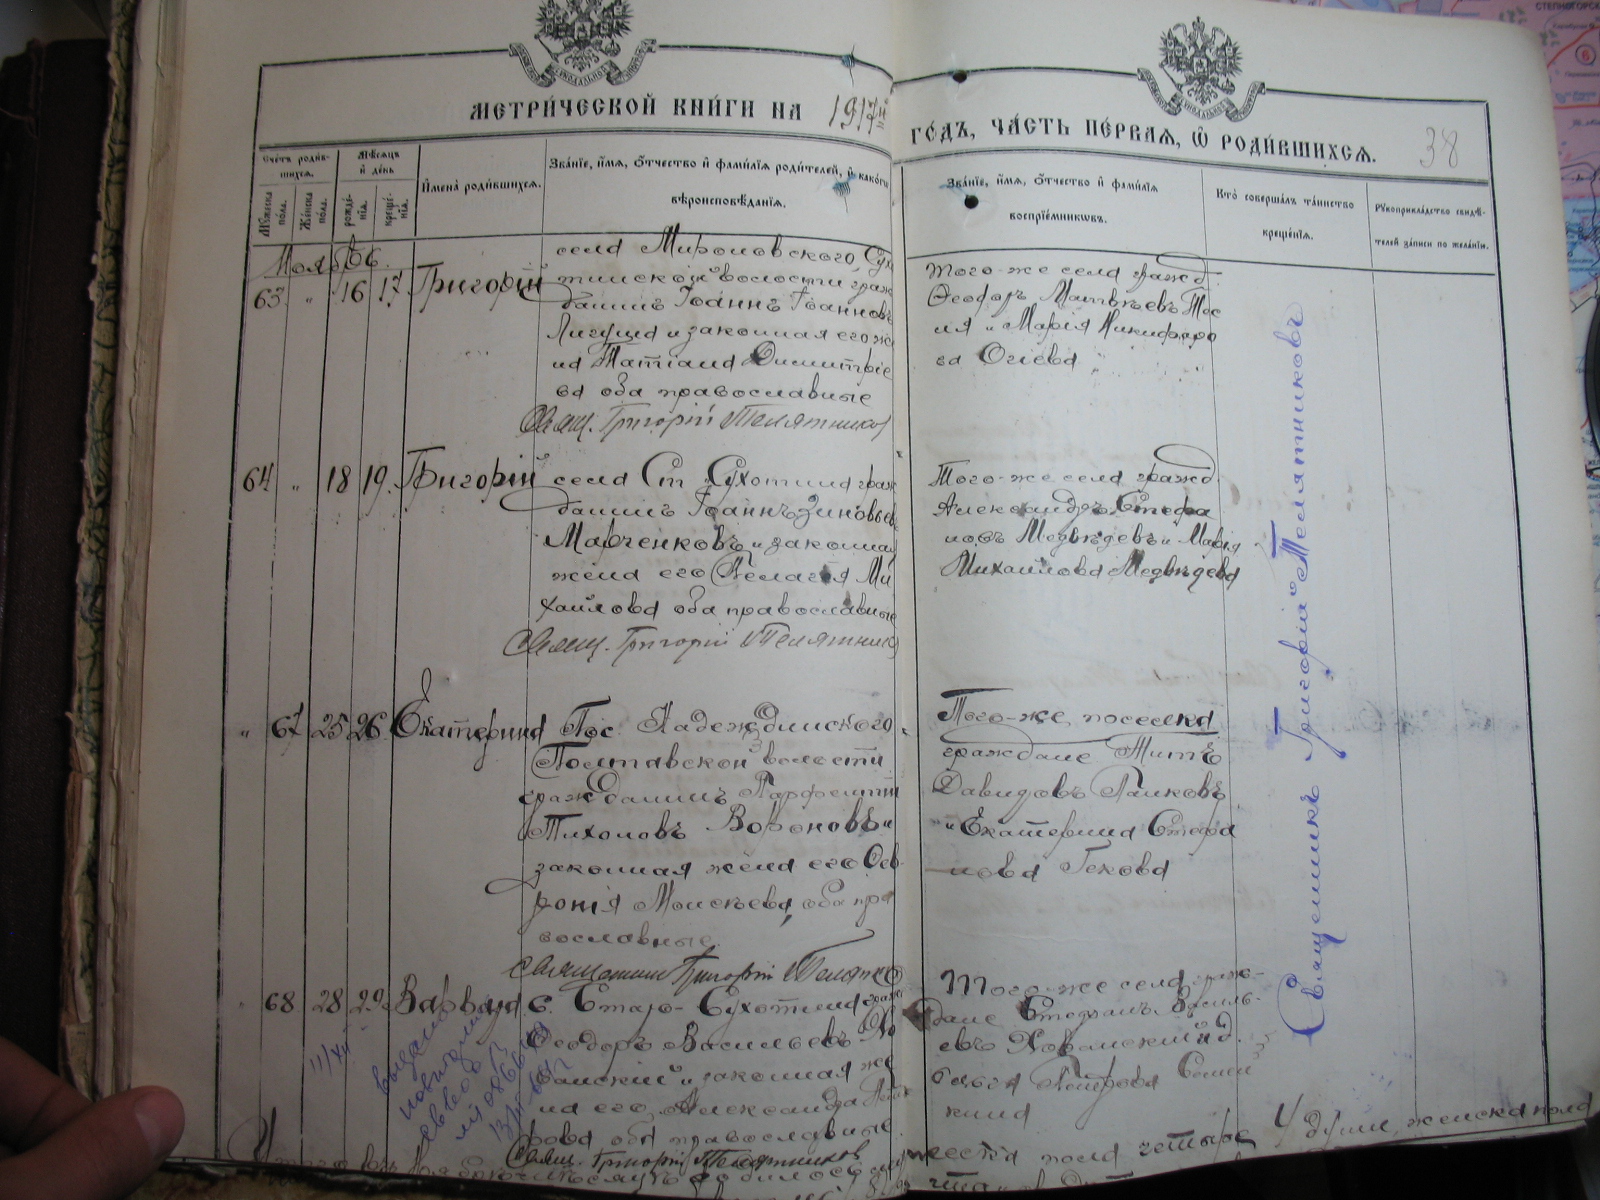 МЕТРИЧЕСКОЙ КНИГИ НА 1917й
ГОДЪ, ЧАСТЬ ПЕРВАЯ, Ѿ РОДИВШИХСЯ.
38
Счетъ родив-
шихся.
Мѣсяцъ
и день
Мужеска пола.
Женска пола.
рожде-
нія.
креще-
нія.
Имена родившихся.
Званіе, имя, отчество и фамилія родителей, и какого
вѣроисповѣданія.
Званіе, имя, отчество и фамилія
воспріемниковъ.
Кто совершалъ таинство
крещенія.
Рукоприкладство свидѣ-
телей записи по желанію.
Ноябрь
63 " 16 17 Григорій
села Мироновского, Сухо
тинской волости граж
данинъ Іоаннъ Іоанновъ
и законная его же
на Татіана Димитріе
ва оба православные
Свящ. Григорій Телятников
того-же села гражд.
Ѳеодоръ Матвѣевъ
и Марія Никифоро
ва Огіева
64 " 18 19 Григорій
села Ст. Сухотина граж
данинъ Іоаннъ Зиновьев
Марченковъ и законная
жена его Пелагія Ми
хайлова оба православные
Свящ. Григорій Телятников
Того-же села гражд.
Александръ Стефа
новъ Медвѣдевъ и Марія
Михаилова Медвѣдева
" 67 25 26 Екатерина
Пос. Надеждинского
Полтавской волости
гражданинъ Парфентій
Тихоновъ Вороновъ и
законная жена его Фев-
ронія Моисѣева, оба пра
вославные.
Священник Григорій Телятников
Того-же поселка
граждане Титъ
Давидовъ Панковъ
и Екатерина Стефа
нова Гехова
" 68 28 29 Варвара
с. Старо-Сухотина граж
Ѳеодоръ Васильевъ Хо
ванскій и законная же
на его, Александра
рова, оба православные.
Свящ. Григорій Телятников
Того-же села граж-
дане Стефанъ Василь-
евъ Хованскій и
Петрова Семен
кина
Священникъ Григорій Телятниковъ
11/XII
выдано
4 души, женска пола